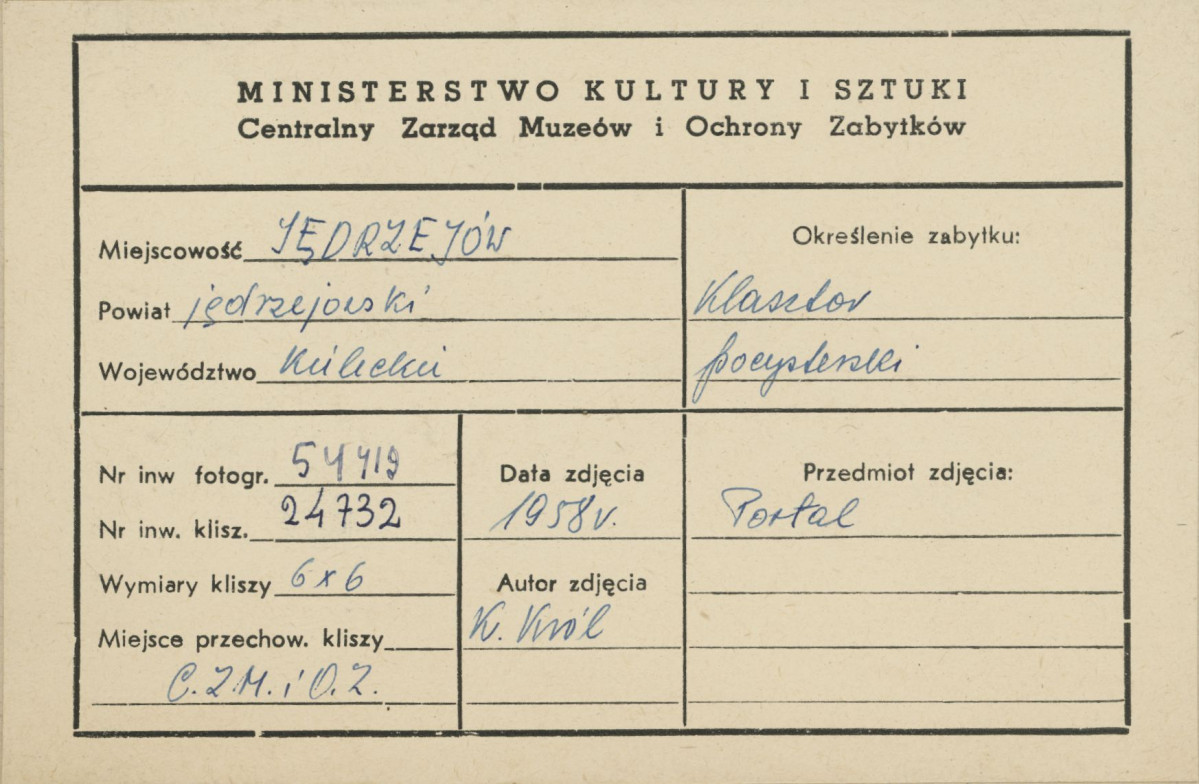 MINISTERSTWO KULTURY I SZTUKI
Centralny Zarząd Muzeów i Ochrony Zabytków
Miejscowość JĘDRZEJÓW
Powiat jędrzejowski
Województwo Kieleckie
Określenie zabytku:
Klasztor
pocysterski
Nr inw fotogr. 54419
Nr inw. klisz. 24732
Wymiary kliszy 6x6
Miejsce przechow. kliszy
C.Z.M. i O.Z.
Data zdjęcia
1958 r.
Autor zdjęcia
K. Król
Przedmiot zdjęcia:
Portal